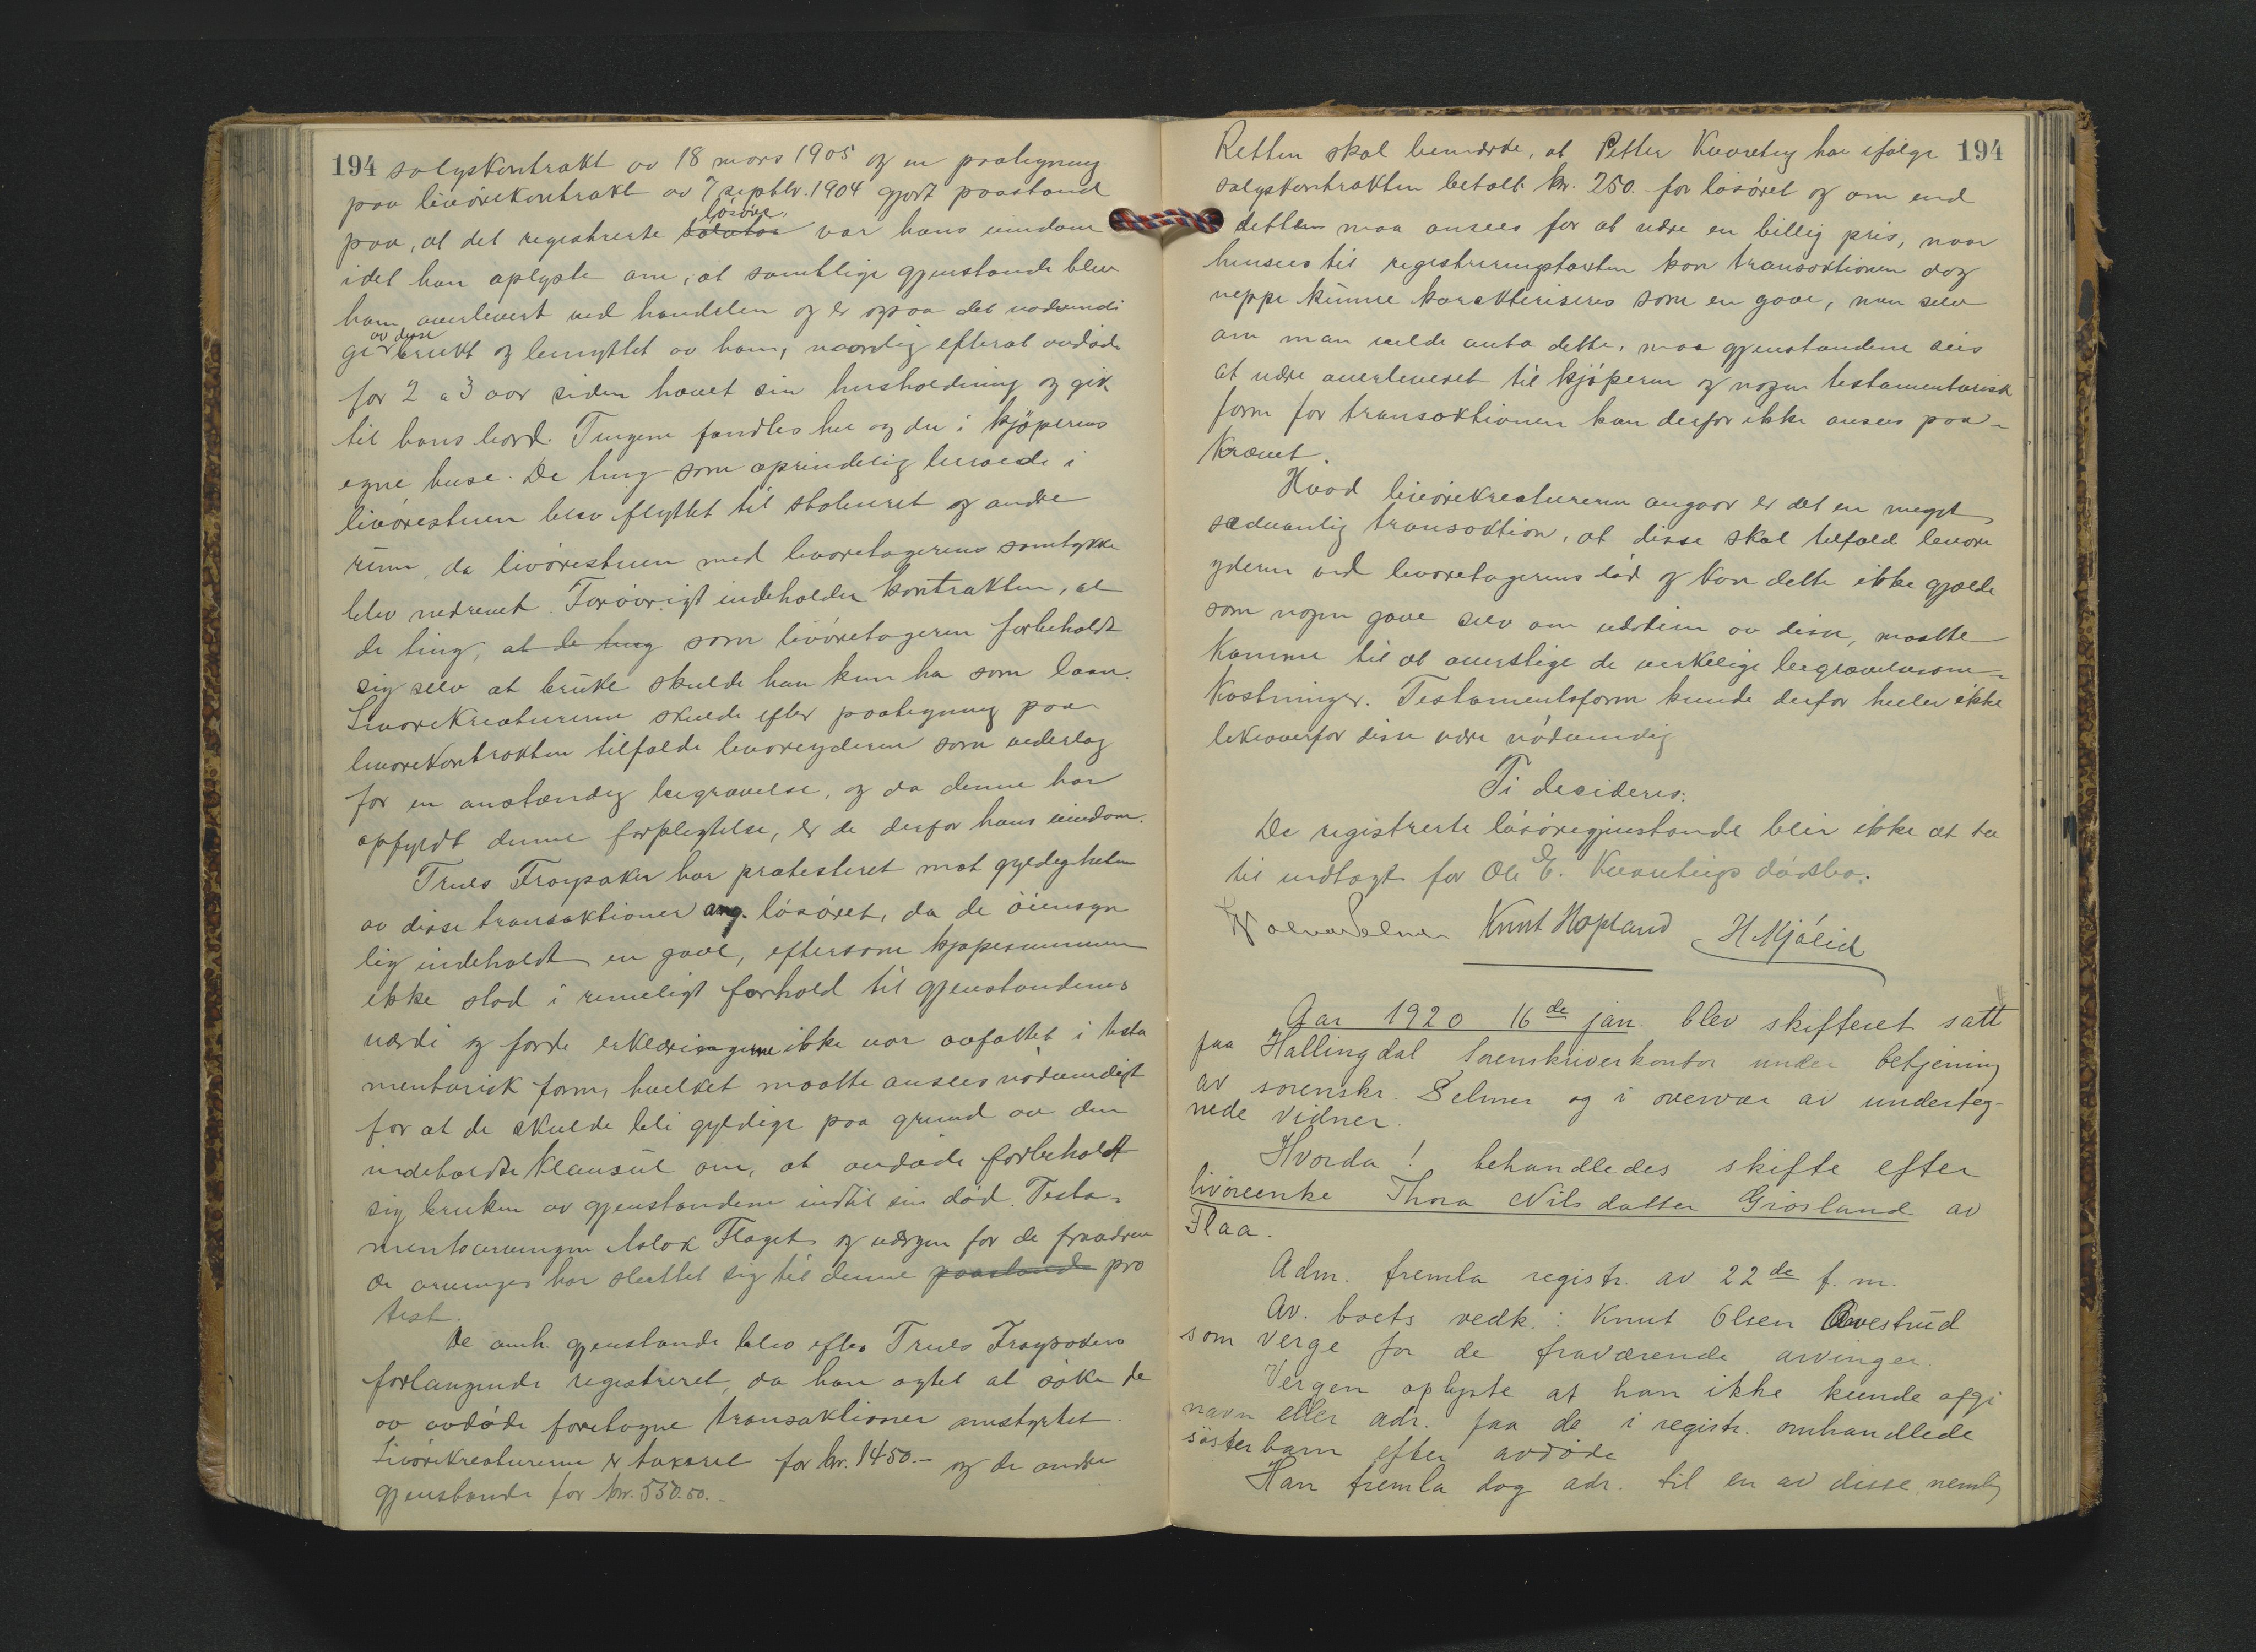 194 salgskontrakt av 18 mars 1905 og en paategning
paa livørekontrakt av 7 septbr. 1904 gjort paastand
paa, at det registrerte løsøre var hans eiendom
idet han oplyste om, at samtlige gjenstande blev
ham overlevert ved handelen og er ogsaa det nødvendi
ge av disse brukt og benyttet av ham, navnlig efterat avdøde
for 2 a 3 aar siden hævet sin husholdning og gik
til hans bord. Tingene fandtes her og der i kjøperens
egne huse. De ting som oprindelig beroede i
livørestuen blev flyttet til stabburet og andre
rum, da livørestuen med livøretagerens samtykke
blev nedrevet. Forøvrigt indeholder kontrakten, at
de ting, at de ting som livøretageren forbeholdt
sig selv at bruke skulde han kun ha som laan.
Livørekreaturerne skulde efter paategning paa
livørekontrakten tilfalde livøreyderen som vederlag
for en anstændig begravelse, og da denne har
opfyldt denne forpligtelse, er de derfor hans eiendom.
Truls Frøysaker har protesteret mot gyldigheten
av disse transaktioner ang. løsøret, da de øiensyn
lig indeholdt en gave, eftersom kjøpesummen
ikke stod i rimeligt forhold til gjenstandenes
værdi og fordi erklæringerne ikke var avfattet i testa
mentarisk form, hvilket maatte ansees nødvendigt
for at de skulde bli gyldige paa grund av den
indeholdte klausul om, at avdøde forbeholdt
sig bruken av gjenstandene indtil sin død. Testa-
mentsarvingen Aslak Flaget og vergen for de fraværen
de arvinger har sluttet sig til denne paastand pro
test.
De omh. gjenstande blev efter Truls Frøysakers
forlangende registreret, da han agtet at søke de
av avdøde foretagne transaktioner omstyrtet.
Livørekreaturerne er taxeret for kr. 1450.- og de andre
gjenstande for kr. 550.50.-
Retten skal bemerke, at Petter Kvarteig har ifølge 194
salgskontrakten betalt kr. 250.- for løsøret og om end
detta maa ansees for at være en billig pris, naar
hensees til registreringstaxten kan transaktionen dog
neppe kunne karakteriseres som en gave, men selv
om man vilde anta dette, maa gjenstandene sies
at være overleveret til kjøperen og nogen testamentarisk
form for transaktionen kan derfor ikke ansees paa-
krævet.
Hvad livørekreaturerne angaar er det en meget
sædvanlig transaktion, at disse skal tilfald livøre
yderen ved livøretagerens død og kan dette ikke gjælde
som nogen gave selv om værdien av disse, maatte
komme til at overstige de virkelige begravelsesom-
kostninger. Testamentsform kunde derfor heller ikke
likeoverfor disse være nødvendig
Ti decideres:
De registrerte løsøregjenstande blir ikke at ta
til indtægt for Ole E. Kvarteigs dødsbo.
Knut Hopland H. Mjølid
Aar 1920 16de jan. blev skifteret satt
paa Hallingdal sorenskriverkontor under betjening
av sorenskr. Selmer og i overvær av underteg-
nede vidner.
Hvorda! behandledes skifte efter
livøreenke Thora Nilsdatter Grøsland av
Flaa.
Adm. fremla registr. av 22de f. m.
Av. boets vedk.: Knut Olsen Avestrud
som verge for de fraværende arvinger.
Vergen oplyste at han ikke kunde opgi
navn eller adr. paa de i registr. omhandlede
søsterbarn efter avdøde
Han fremla dog adr. til en av disse nemlig